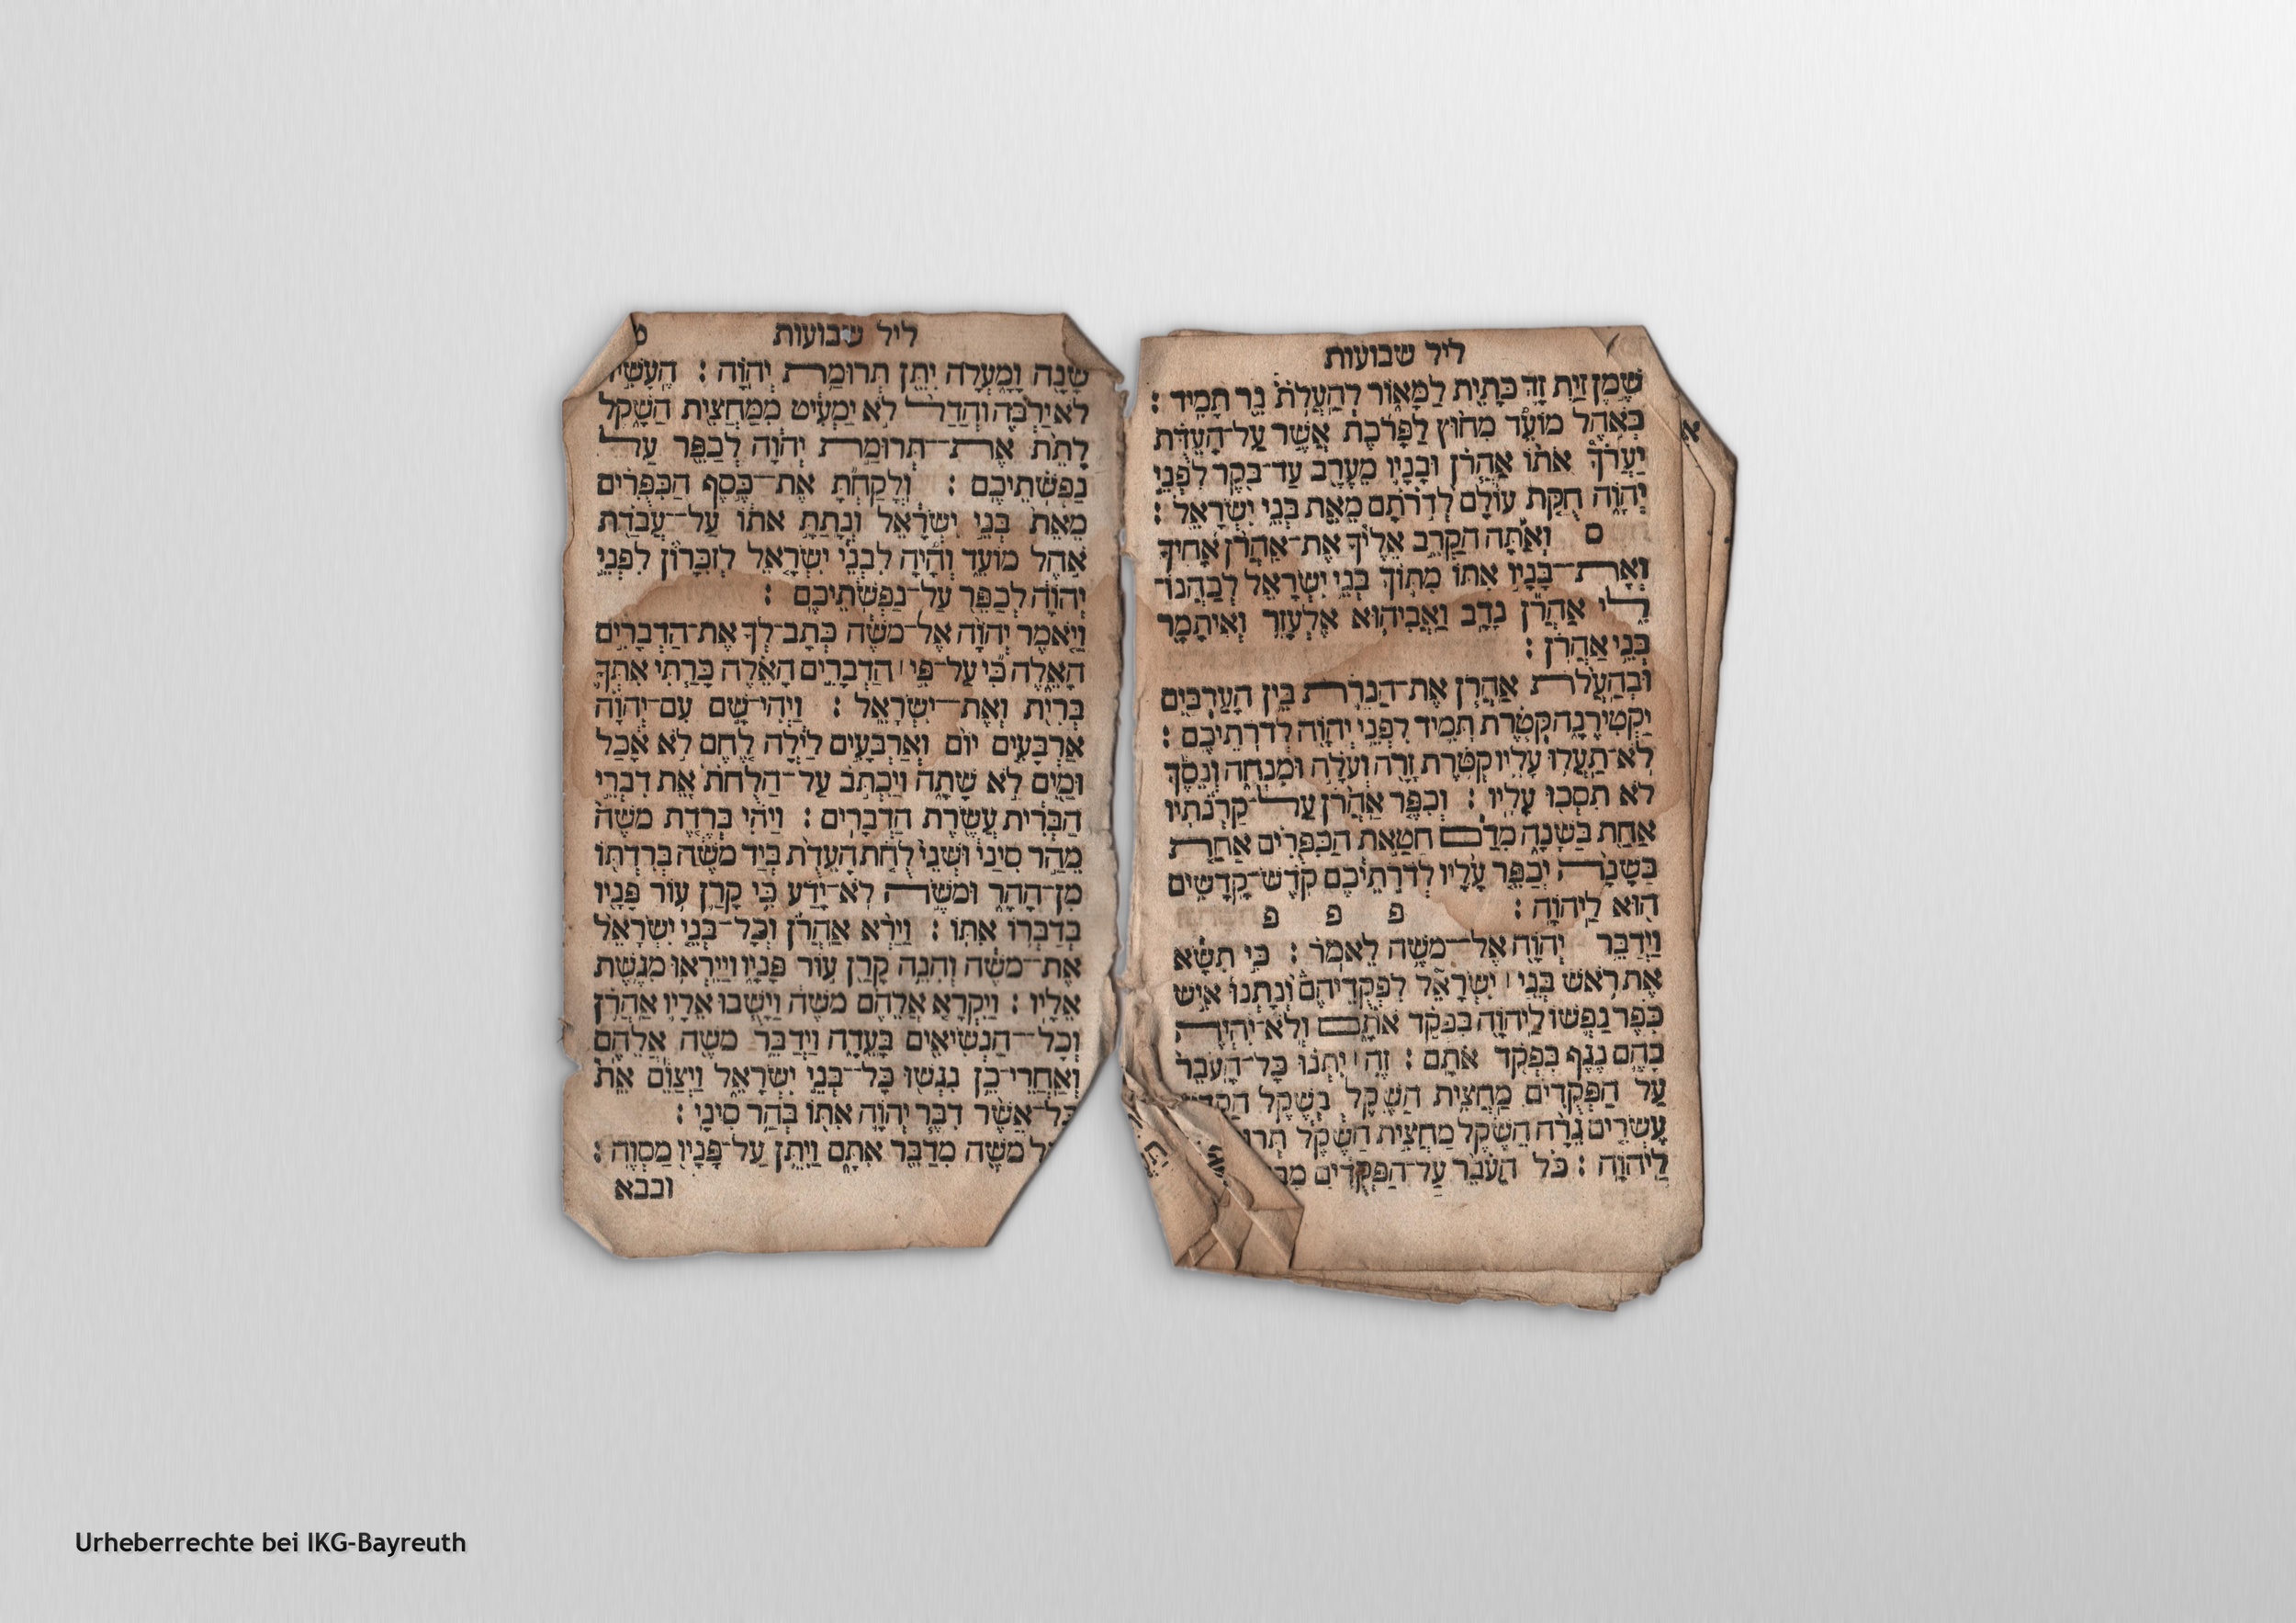 ליל שבועות
שֶׁמֶן זַיִת זָךְ כָּתִית לַמָּאוֹר לְהַעֲלֹת נֵר תָּמִיד :
בְּאֹהֶל מוֹעֵד מִחוּץ לַפָּרֹכֶת אֲשֶׁר עַל־הָעֵדֻת
יַעֲרֹךְ אֹתוֹ אַהֲרֹן וּבָנָיו מֵעֶרֶב עַד־בֹּקֶר לִפְנֵי
יְהוָֹה חֻקַּת עוֹלָם לְדֹרֹתָם מֵאֵת בְּנֵי יִשְׂרָאֵל :
ס וְאַתָּה הַקְרֵב אֵלֶיךָ אֶת־אַהֲרֹן אָחִיךָ
וְאֶת־בָּנָיו אִתּוֹ מִתּוֹךְ בְּנֵי יִשְׂרָאֵל לְכַהֲנוֹ־
לִי אַהֲרֹן נָדָב וַאֲבִיהוּא אֶלְעָזָר וְאִיתָמָר
בְּנֵי אַהֲרֹן :
וּבְהַעֲלֹת אַהֲרֹן אֶת־הַנֵּרֹת בֵּין הָעַרְבַּיִם
יַקְטִירֶנָּה קְטֹרֶת תָּמִיד לִפְנֵי יְהוָֹה לְדֹרֹתֵיכֶם :
לֹא־תַעֲלוּ עָלָיו קְטֹרֶת זָרָה וְעֹלָה וּמִנְחָה וְנֵסֶךְ
לֹא תִסְּכוּ עָלָיו : וְכִפֶּר אַהֲרֹן עַל־קַרְנֹתָיו
אַחַת בַּשָּׁנָה מִדַּם חַטַּאת הַכִּפֻּרִים אַחַת
בַּשָּׁנָה יְכַפֵּר עָלָיו לְדֹרֹתֵיכֶם קֹדֶשׁ־קָדָשִׁים
הוּא לַיהוָֹה : פ פ פ
וַיְדַבֵּר יְהוָֹה אֶל־מֹשֶׁה לֵּאמֹר : כִּי תִשָּׂא
אֶת־רֹאשׁ בְּנֵי ׀ יִשְׂרָאֵל לִפְקֻדֵיהֶם וְנָתְנוּ אִישׁ
כֹּפֶר נַפְשׁוֹ לַיהוָֹה בִּפְקֹד אֹתָם וְלֹא־יִהְיֶה
בָהֶם נֶגֶף בִּפְקֹד אֹתָם : זֶה ׀ יִתְּנוּ כָּל־הָעֹבֵר
עַל הַפְּקֻדִים מַחֲצִית הַשֶּׁקֶל בְּשֶׁקֶל
עֶשְׂרִים גֵּרָה הַשֶּׁקֶל מַחֲצִית הַשֶּׁקֶל
לַיהוָֹה : כֹּל הָעֹבֵר עַל־הַפְּקֻדִים
א
ליל שבועות
ט
שָׁנָה וָמָעְלָה יִתֵּן תְּרוּמַת יְהוָֹה : הֶעָשִׁיר
לֹא־יַרְבֶּה וְהַדַּל לֹא יַמְעִיט מִמַּחֲצִית הַשָּׁקֶל
לָתֵת אֶת־תְּרוּמַת יְהוָֹה לְכַפֵּר עַל
נַפְשֹׁתֵיכֶם : וְלָקַחְתָּ אֶת־כֶּסֶף הַכִּפֻּרִים
מֵאֵת בְּנֵי יִשְׂרָאֵל וְנָתַתָּ אֹתוֹ עַל־עֲבֹדַת
אֹהֶל מוֹעֵד וְהָיָה לִבְנֵי יִשְׂרָאֵל לְזִכָּרוֹן לִפְנֵי
יְהוָֹה לְכַפֵּר עַל־נַפְשֹׁתֵיכֶם :
וַיֹּאמֶר יְהוָֹה אֶל־מֹשֶׁה כְּתָב־לְךָ אֶת־הַדְּבָרִים
הָאֵלֶּה כִּי עַל־פִּי ׀ הַדְּבָרִים הָאֵלֶּה כָּרַתִּי אִתְּךָ
בְּרִית וְאֶת־יִשְׂרָאֵל : וַיְהִי־שָׁם עִם־יְהוָֹה
אַרְבָּעִים יוֹם וְאַרְבָּעִים לַיְלָה לֶחֶם לֹא אָכַל
וּמַיִם לֹא שָׁתָה וַיִּכְתֹּב עַל־הַלֻּחֹת אֵת דִּבְרֵי
הַבְּרִית עֲשֶׂרֶת הַדְּבָרִים : וַיְהִי בְּרֶדֶת מֹשֶׁה
מֵהַר סִינַי וּשְׁנֵי לֻחֹת הָעֵדֻת בְּיַד מֹשֶׁה בְּרִדְתּוֹ
מִן־הָהָר וּמֹשֶׁה לֹא־יָדַע כִּי קָרַן עוֹר פָּנָיו
בְּדַבְּרוֹ אִתּוֹ : וַיַּרְא אַהֲרֹן וְכָל־בְּנֵי יִשְׂרָאֵל
אֶת־מֹשֶׁה וְהִנֵּה קָרַן עוֹר פָּנָיו וַיִּירְאוּ מִגֶּשֶׁת
אֵלָיו : וַיִּקְרָא אֲלֵהֶם מֹשֶׁה וַיָּשֻׁבוּ אֵלָיו אַהֲרֹן
וְכָל־הַנְּשִׂיאִים בָּעֵדָה וַיְדַבֵּר מֹשֶׁה אֲלֵהֶם
וְאַחֲרֵי־כֵן נִגְּשׁוּ כָּל־בְּנֵי יִשְׂרָאֵל וַיְצַוֵּם אֵת
כָּל־אֲשֶׁר דִּבֶּר יְהוָֹה אִתּוֹ בְּהַר סִינָי :
מֹשֶׁה מִדַּבֵּר אִתָּם וַיִּתֵּן עַל־פָּנָיו מַסְוֶה :
ובבא
Urheberrechte bei IKG-Bayreuth